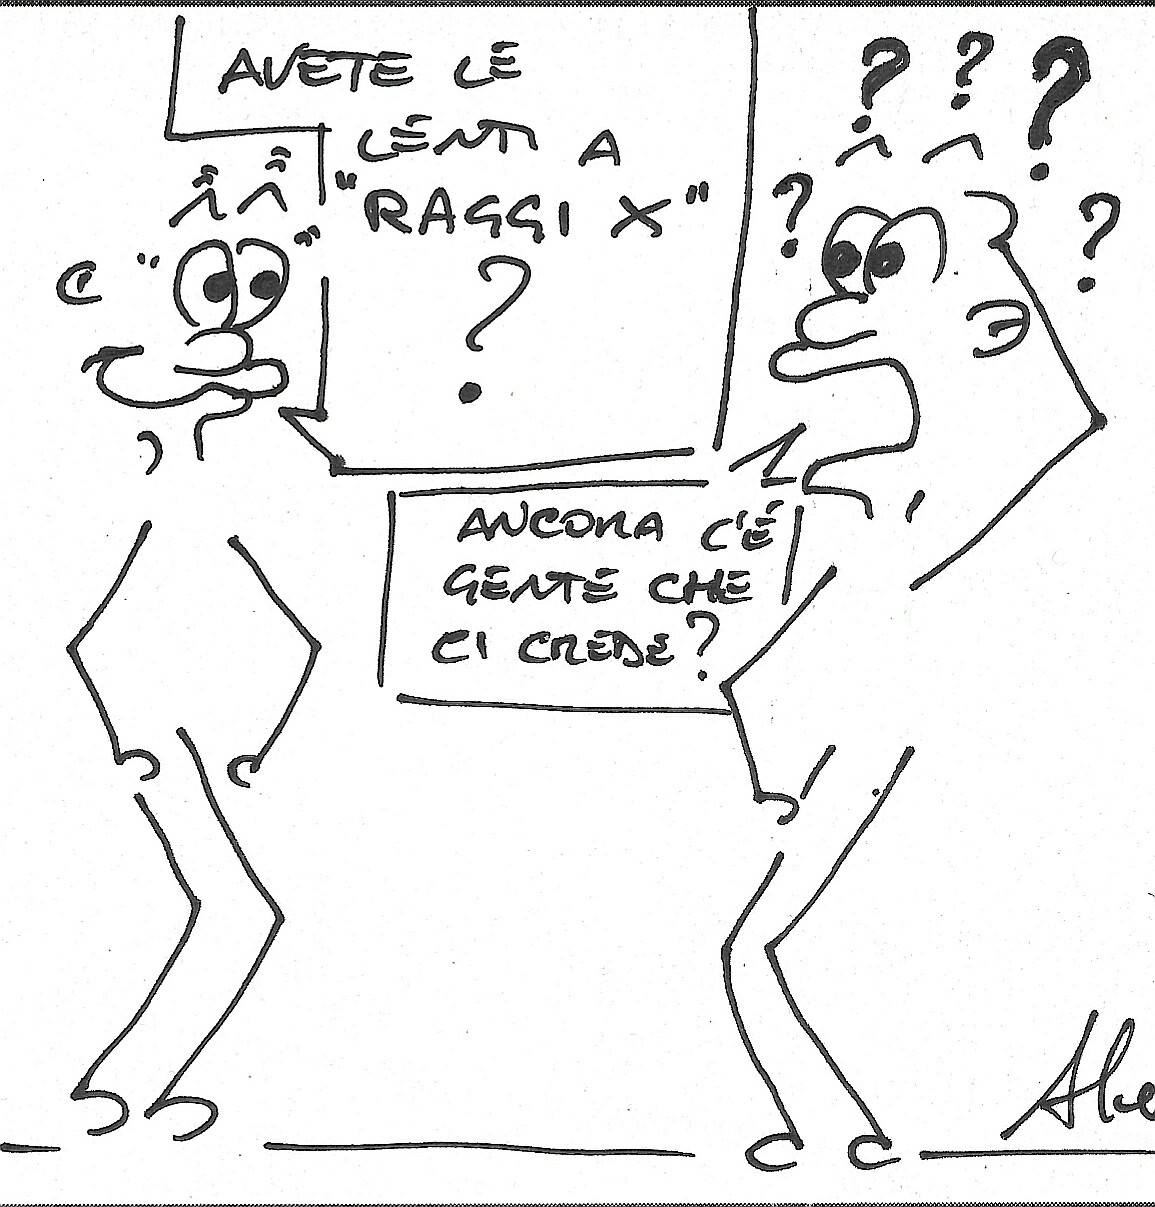 AVETE LE
LENTI A
"RAGGI X"
?
? ? ?
? ?
ANCORA C'É
GENTE CHE
CI CREDE?